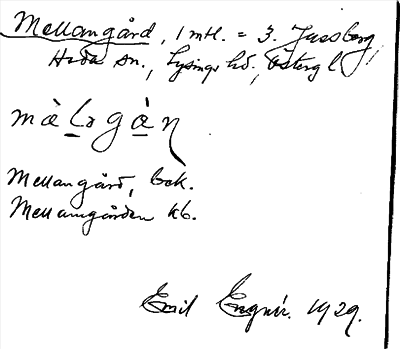 Mellangård, 1 mtl. = 3. Jussberg,
Heda sn., Lysings hd., Östergl.
Mellangård, bek.
Mellangården kb.
Emil Engnér. 1929.